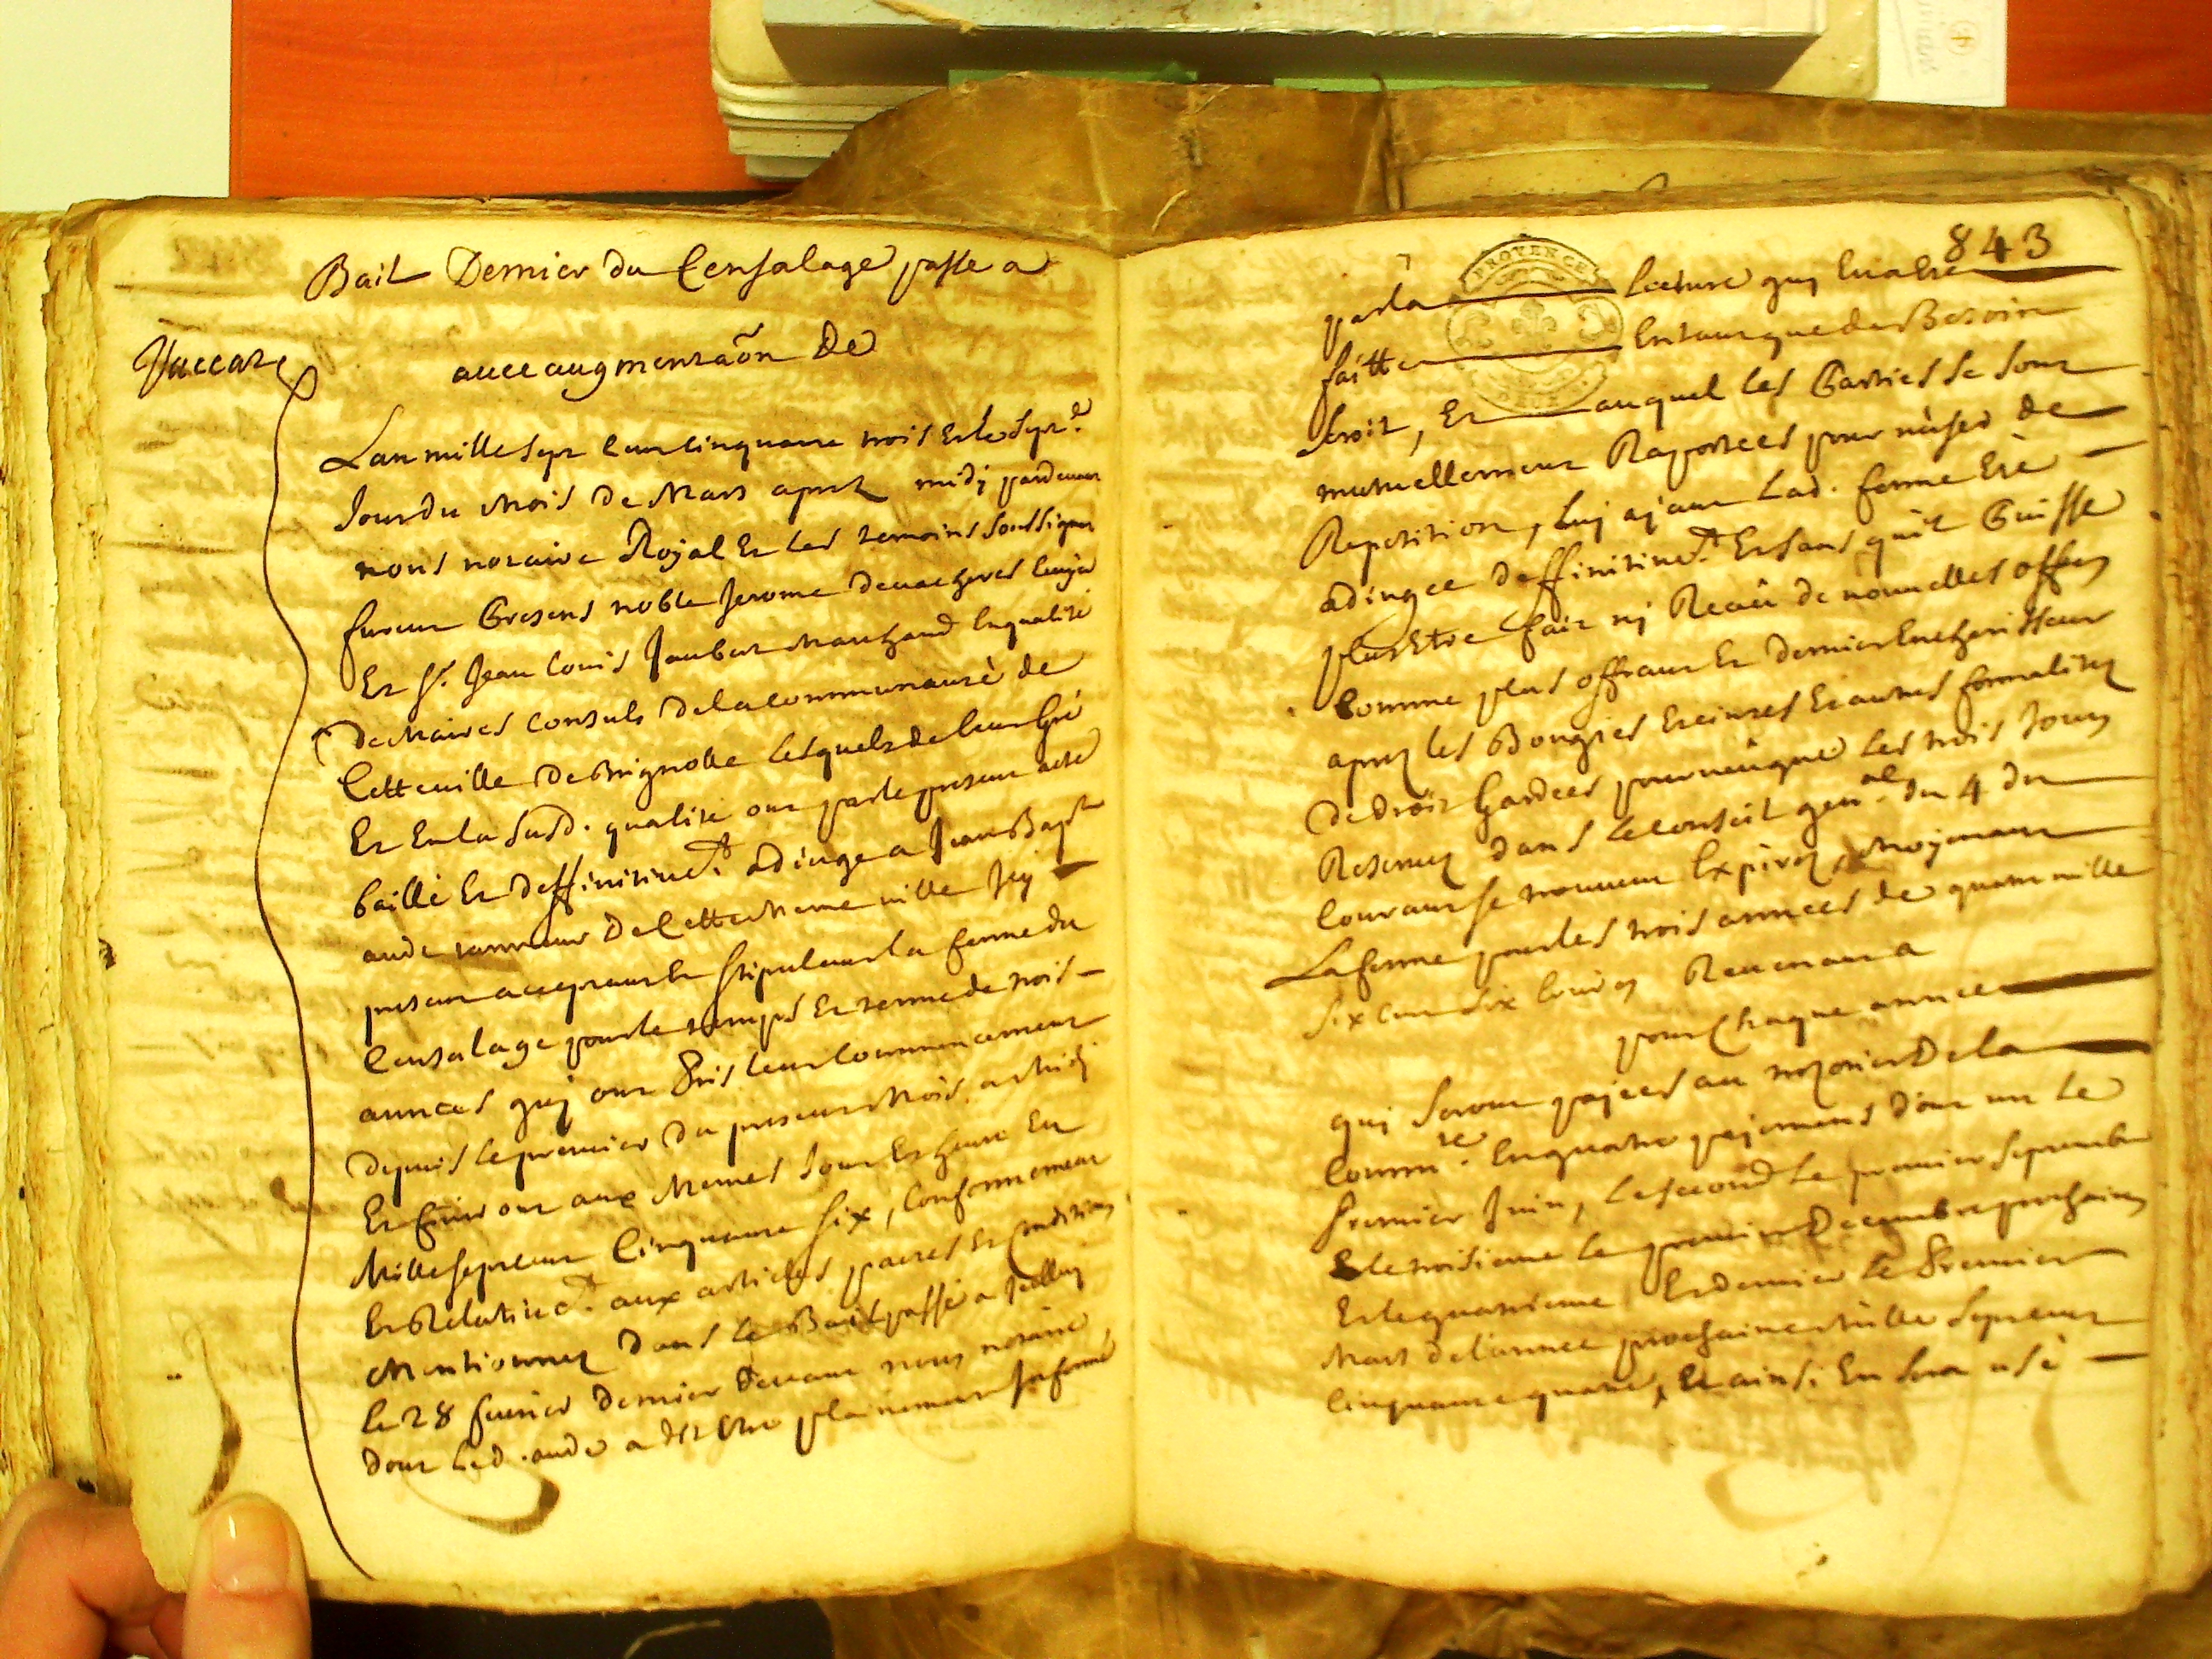 Bail Dernier du Censalage passe a
avec augmentaõn De
Vaccare
Lan mille sept cent cinquante trois et le sept.e
Jour du mois de Mars aprez midj pardevant
nous notaire Royal et les temoins soussignez
furent presens noble Jerome
et Sr. Jean Louis Jaubert marchand en qualité
de Maires Consuls de la communauté de
cette ville de Brignolle lesquels de leur gré
et en la susd. qualité ont par le present acte
baillé et deffinitivet. adjuge a Jean Bapt
aude tanneur de cette meme ville Icy
present acceptant et stipulant la ferme du
Censalage pour le temps et terme de trois
années quj ont pris leur commencement
depuis le premier du present mois a midj
et finiront aux memes jour et heure en
Mille sept cent cinquante six, conformement
et Relativet. aux articles pactes et conditions
Mentionnez dans le Bail passé a
le 28 fevrier dernier devant nous notaire
dont led. aude a dit etre plainement informé
843
PROVENCE
DEUX
par la lecture quj luj a ete
faitte en tant que de Besoin
seroit, et auquel les Parties se sont
mutuellement Raportees pour n'user de
Repetition, luj ajant lad. ferme été
adjugee deffinitivet. et sans qu'il Puisse
plus etre fait nj Reçû de nouvelles offres
comme plus offrant et dernier Encherisseur
aprez les Bougies eteintes et autres formalitez
de droit gardees
Reservez dans le conseil genal. du 4 du
courant se trouvent Expirez, Moyenant
La ferme pour les trois annees de quatre mille
six cent six livres Revenant a
pour chaque annee
qui seront pajees au trezorier de la
commte. en quatre pajemens dont un le
premier Juin, le second le premier septembre
et le troisieme le premier decembre prochains
et le quatrieme et dernier le Premier
Mars de l'annee prochaine mille sept cent
cinquante quatre, et ainsi en sera usé